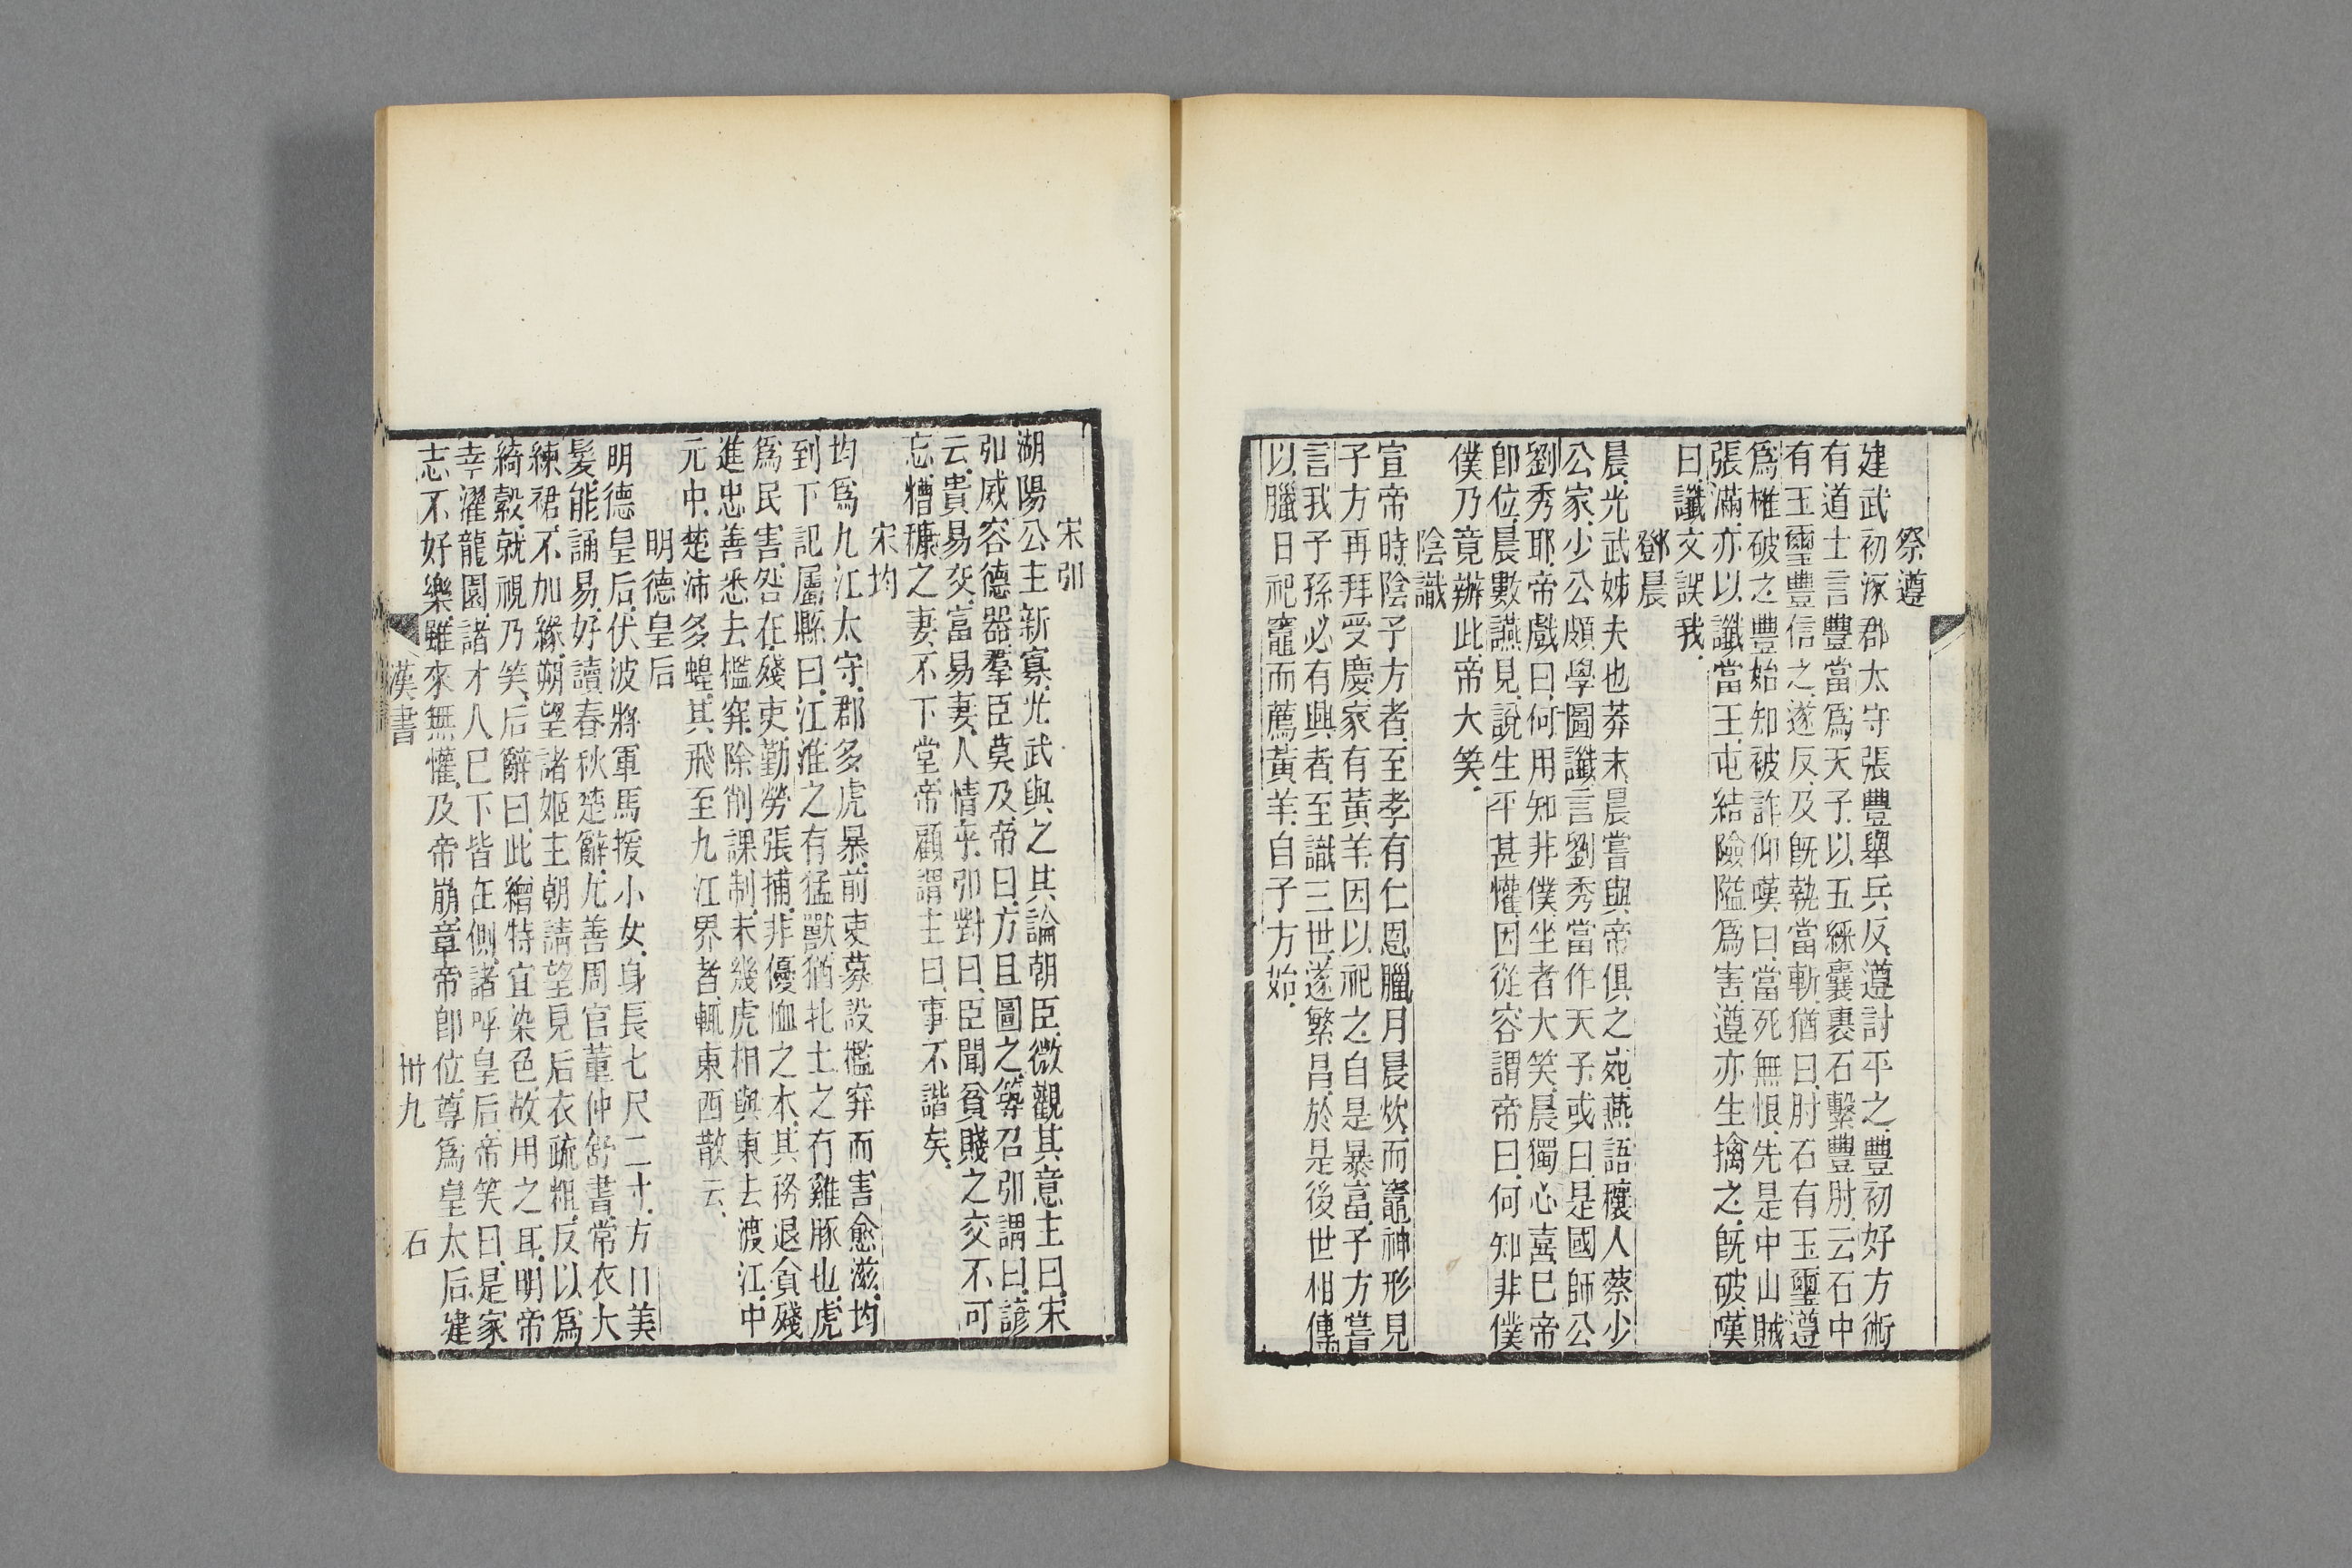 祭遵
建武初涿郡太守張豐舉兵反遵討平之豐初好方術
有道士言豐當爲天子以五綵囊裹石繫豐肘云石中
有玉璽豐信之遂反及旣執當斬猶曰肘石有玉璽遵
爲椎破之豐始知被詐仰嘆曰當死無恨先是中山賊
張滿亦以讖當王屯結險隘爲害遵亦生擒之旣破嘆
曰讖文誤我
鄧晨
晨光武姊夫也莽末晨嘗與帝俱之宛燕語穰人蔡少
公家少公頗學圖讖言劉秀當作天子或曰是國師公
劉秀耶帝戲曰何用知非僕坐者大笑晨獨心喜巳帝
卽位晨數讌見說生平甚懽因從容謂帝曰何知非僕
僕乃竟辦此帝大笑
陰識
宣帝時陰子方者至孝有仁恩臘月晨炊而竈神形見
子方再拜受慶家有黃羊因以祀之自是暴富子方嘗
言我子孫必有興者至識三世遂繁昌於是後世相傳
以臘日祀竈而薦黃羊自子方始
宋弘
湖陽公主新寡光武與之其論朝臣微觀其意主曰宋
弘威容德器羣臣莫及帝曰方且圖之等召弘謂曰諺
云貴易交富易妻人情乎弘對曰臣聞貧賤之交不可
忘糟糠之妻不下堂帝顧謂主曰事不諧矣
宋均
均爲九江太守郡多虎暴前吏募設檻穽而害愈滋均
到下記屬縣曰江淮之有猛獸猶北土之有雞豚也虎
爲民害咎在殘吏勤勞張捕非優恤之本其務退貪殘
進忠善悉去檻穽除削課制未幾虎相與東去渡江中
元中楚沛多蝗其飛至九江界者輒東西散云
明德皇后
明德皇后伏波將軍馬援小女身長七尺二寸方口美
髮能誦易好讀春秋楚辭尤善周官董仲舒書常衣大
練裙不加緣朔望諸姬主朝請望見后衣疏粗反以爲
綺縠就視乃笑后辭曰此繒特宜染色故用之耳明帝
幸濯龍園諸才人巳下皆在側諸呼皇后帝笑曰是家
志不好樂雖來無懽及帝崩章帝卽位尊爲皇太后建
漢書 卅九 石